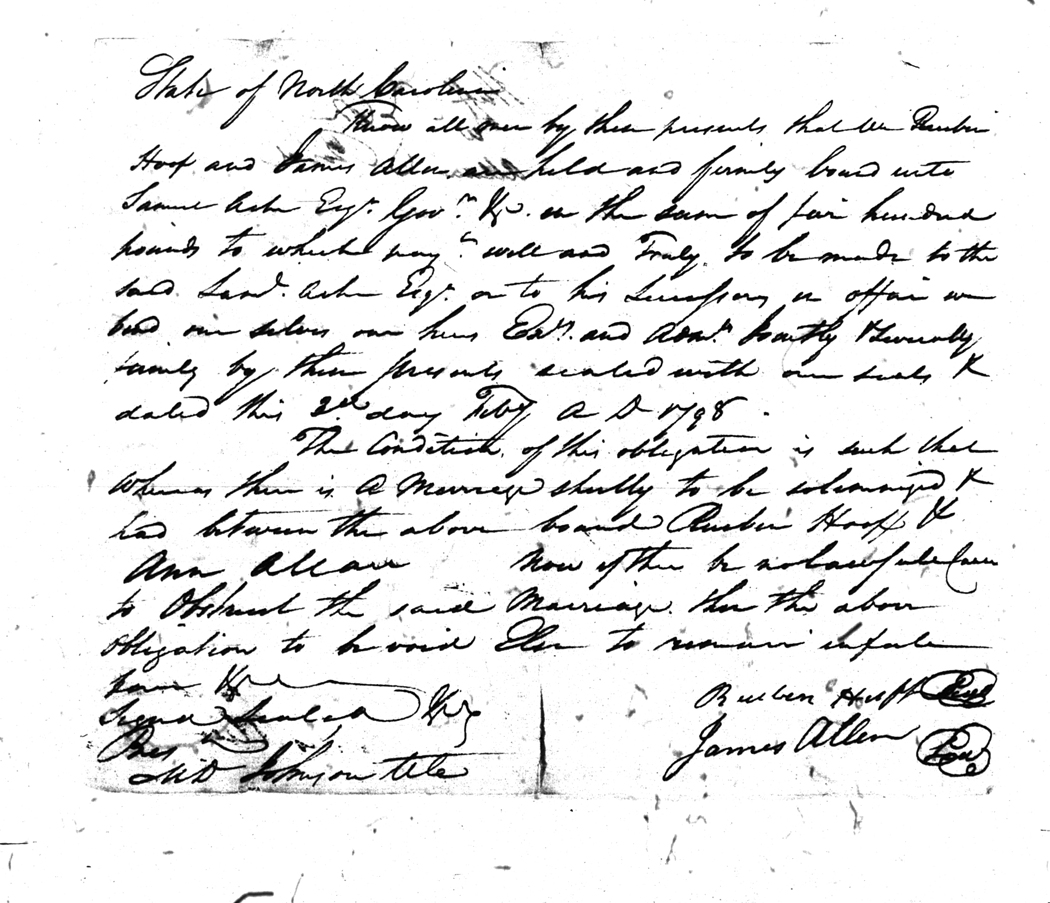 State of North Carolina
Know all men by these presents that we Reubin
Hoof and James Allen are held and firmly bound unto
Samuel Ashe Esqr. Govr. &c. in the sum of five hundred
pounds to which paymt. well and Truly to be made to the
said Saml. Ashe Esqr. or to his Successors in office we
bind our selves our heirs Exrs. and Admrs. Jointly & Severally
firmly by these presents sealed with our seals &
dated this 2nd day Feby A D 1798.
The Condition of this obligation is such that
Whereas there is A Marriage shortly to be solemnized &
had between the above bound Rueben Hooff &
Ann Allen Now if there be no lawfull Cause
to Obstruct the said Marriage then the above
obligation to be void Else to remain in full
force &c
Signd Sealed &c
Pres
Johnson
Reuben Huff Seal
James Allen Seal